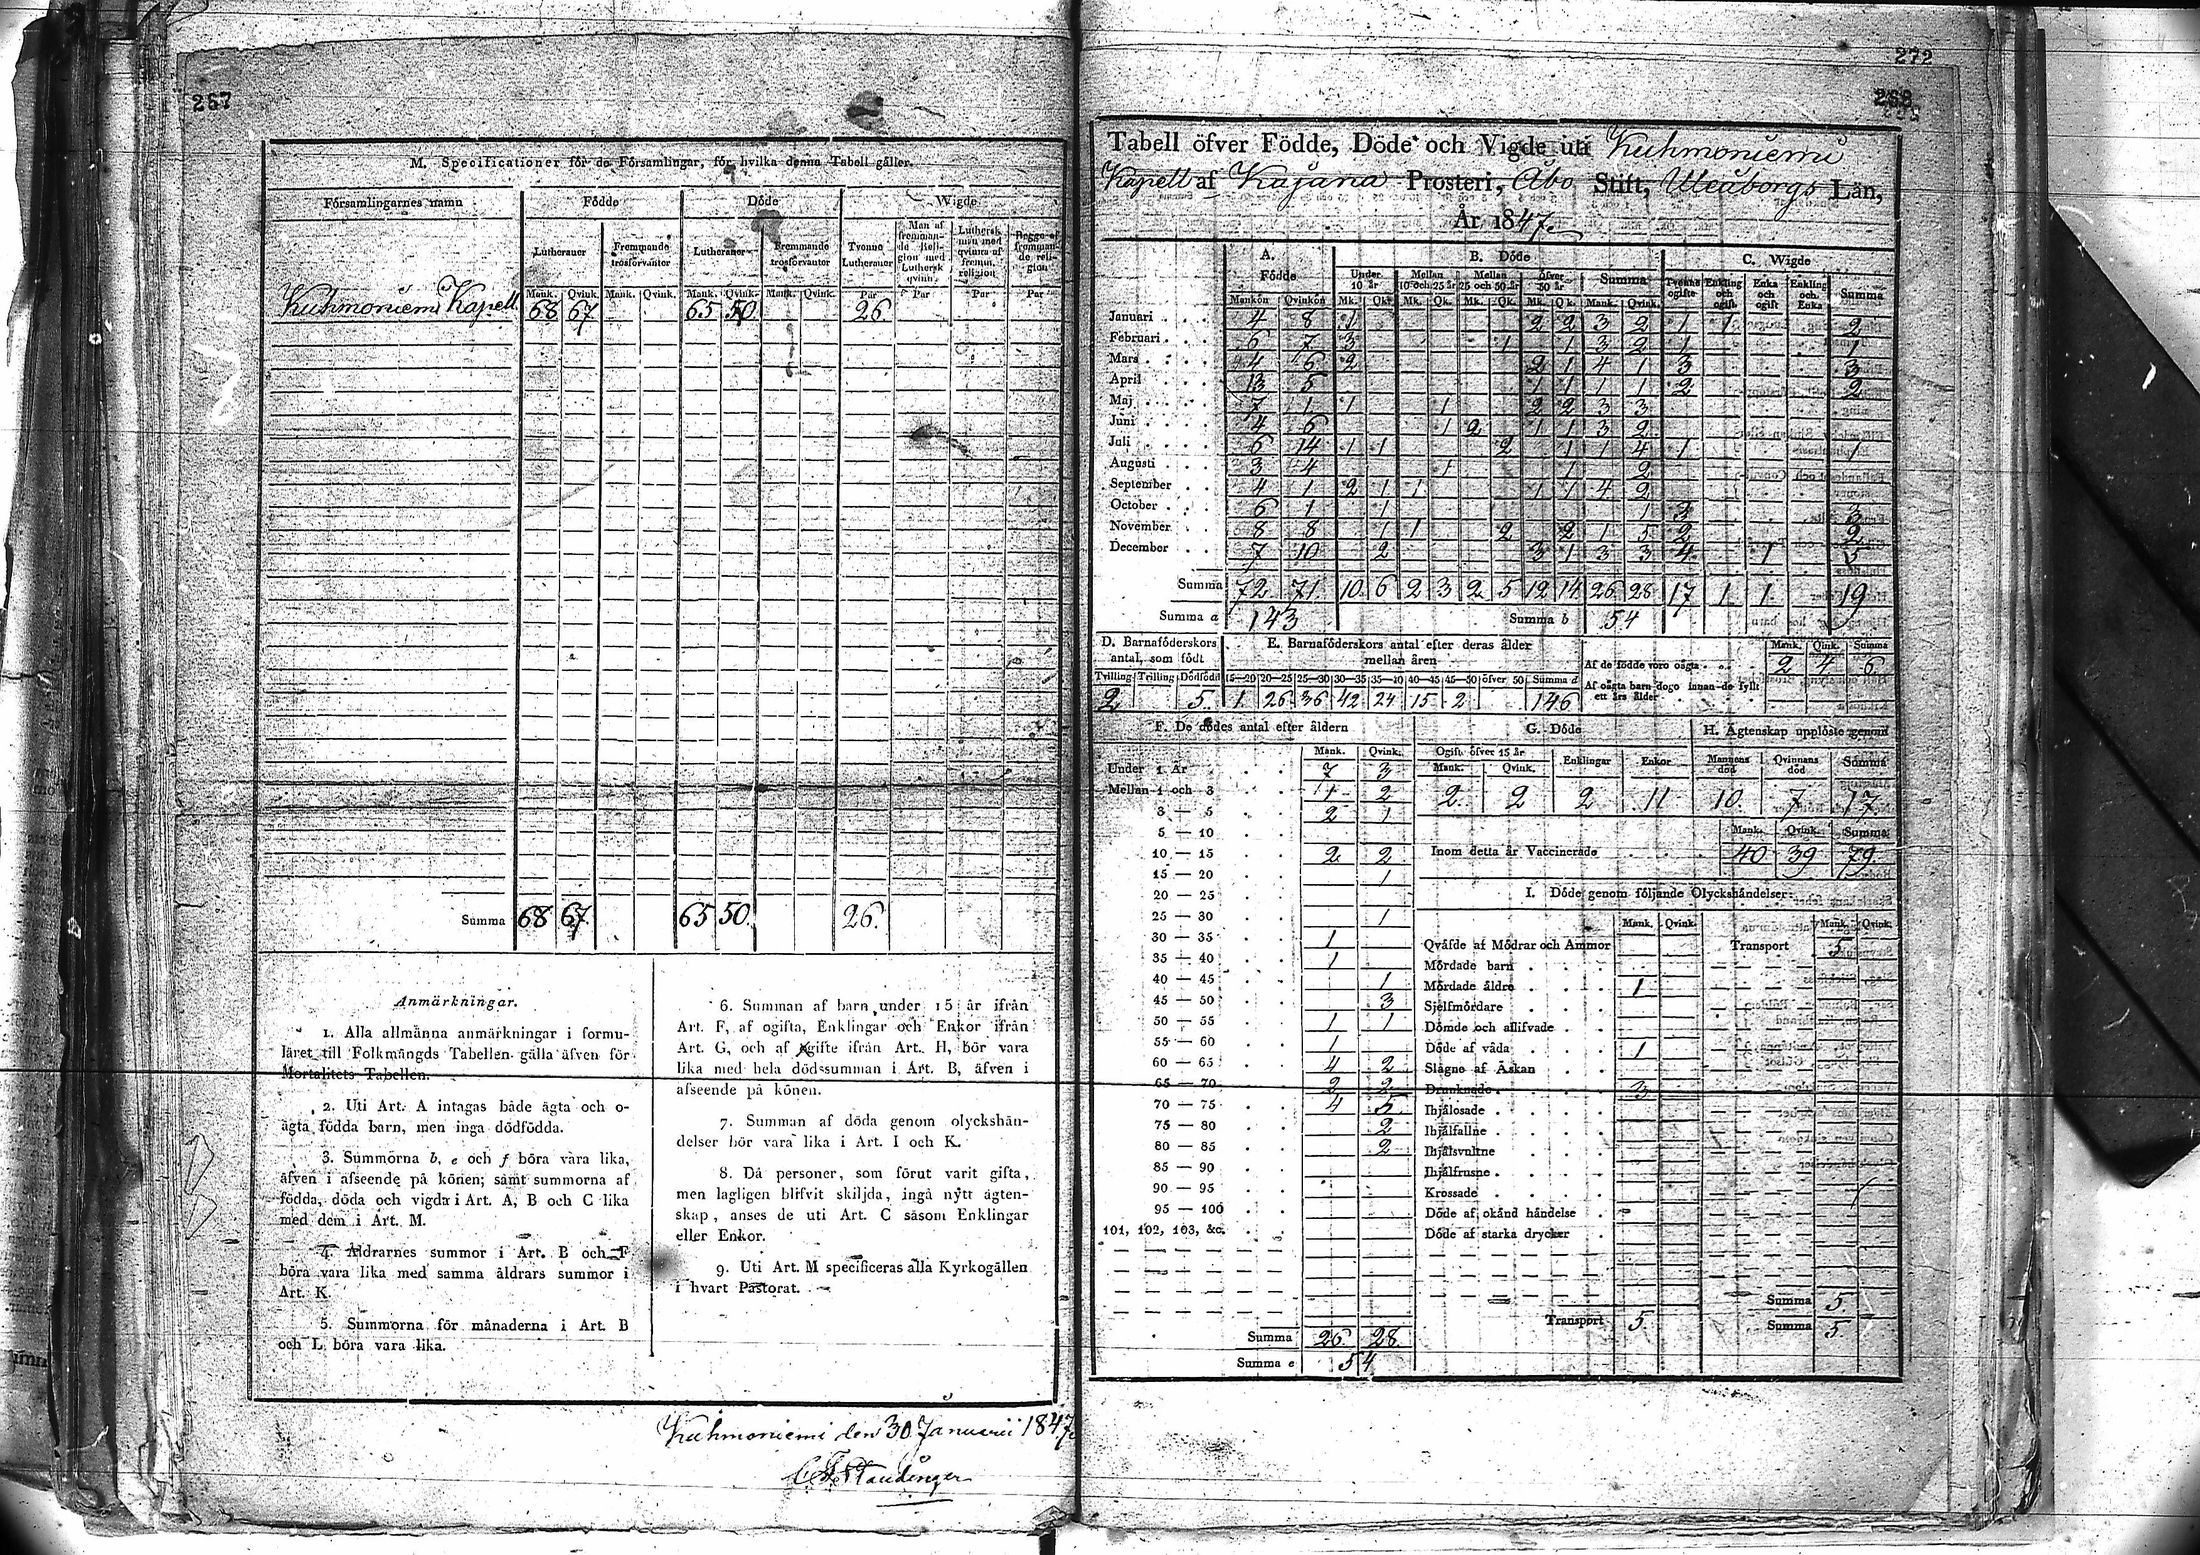 267
M. Specificationer för de Församlingar, för hvilka denna Tabell gäller.
Församlingarnes namn Födde Döde Wigde
Lutheraner Fremmande trosförvanter Lutheraner Fremmande trosförvanter Tvenne Lutheraner Man af fremmande Religion med Luthersk qvinna Luthersk man med qvinna af fremm. religion Begge af fremmande religion
Mank. Qvink. Mank. Qvink. Mank. Qvink. Mank. Qvink. Par Par Par Par
Kuhmoniemi Kapell 68 67 65 50 26
Summa 68 67 65 50 26
Anmärkningar.
1. Alla allmänna anmärkningar i formu-
läret till Folkmängds Tabellen gälla äfven för
Mortalitets Tabellen.
2. Uti Art. A intagas både ägta och o-
ägta födda barn, men inga dödfödda.
3. Summorna b, e och f böra vara lika,
äfven i afseende på könen; samt summorna af
födda, döda och vigda i Art. A, B och C lika
med dem i Art. M.
4. Åldrarnes summor i Art. B och F
böra vara lika med samma åldrars summor i
Art. K.
5. Summorna för månaderna i Art. B
och L böra vara lika.
6. Summan af barn under 15 år ifrån
Art. F, af ogifta, Enklingar och Enkor ifrån
Art. G, och af gifte ifrån Art. H, bör vara
lika med hela dödssumman i Art. B, äfven i
afseende på könen.
7. Summan af döda genom olyckshän-
delser bör vara lika i Art. I och K.
8. Då personer, som förut varit gifta,
men lagligen blifvit skiljda, ingå nytt ägten-
skap, anses de uti Art. C såsom Enklingar
eller Enkor.
9. Uti Art. M specificeras alla Kyrkogällen
i hvart Pastorat.
Kuhmoniemi den 30 Januarii 1847.
272
268
Tabell öfver Födde, Döde och Vigde uti Kuhmoniemi
Kapell af Kajana Prosteri, Åbo Stift, Uleåborgs Län,
År 1847.
A. Födde B. Döde C. Wigde
Under 10 år Mellan 10 och 25 år Mellan 25 och 50 år Öfver 50 år Summa Tvenne ogifte Enkling och ogift Enka och ogift Enkling och Enka Summa
Mankön Qvinkön Mk. Qk. Mk. Qk. Mk. Qk. Mk. Qk. Mank. Qvink.
Januari 4 8 1 2 2 3 2 1 1 2
Februari 6 7 3 1 1 3 2 1 1
Mars 4 6 2 2 1 4 1 3 3
April 13 5 1 1 1 1 2 2
Maj 7 1 1 1 2 2 3 3
Juni 4 6 1 2 1 1 3 2
Juli 6 14 1 1 2 1 1 4 1 1
Augusti 3 4 1 1 2
September 4 1 2 1 1 1 1 4 2
October 6 1 1 1 3 3
November 8 8 1 1 2 2 1 5 2 2
December 7 10 2 3 1 3 3 4 1 5
Summa 72 71 10 6 2 3 2 5 12 14 26 28 17 1 1 19
Summa a 143 Summa b 54
D. Barnaföderskors antal, som födt
Tvilling Trilling Dödfödd
2 5
E. Barnaföderskors antal efter deras ålder mellan åren
15—20 20—25 25—30 30—35 35—40 40—45 45—50 öfver 50 Summa d
1 26 36 42 24 15 2 146
Mank. Qink. Summa
Af de födde voro oägta 2 4 6
Af oägta barn dogo innan de fyllt ett års ålder
F. De dödes antal efter åldern
Mank. Qvink.
Under 1 År 7 3
Mellan 1 och 3 1 2
3 — 5 2 1
5 — 10
10 — 15 2 2
15 — 20 1
20 — 25
25 — 30 1
30 — 35 1
35 — 40 1
40 — 45 1
45 — 50 3
50 — 55 1 1
55 — 60 1
60 — 65 4 2
65 — 70 2 2
70 — 75 4 5
75 — 80 2
80 — 85 2
85 — 90
90 — 95
95 — 100
101, 102, 103, &c.
Summa 26 28
Summa e 54
G. Döde
Ogift öfver 15 år Enklingar Enkor
Mank. Qvink.
2 2 2 11
H. Ägtenskap upplöste genom
Mannens död Qvinnans död Summa
10 7 17
Mank. Qvink. Summa
Inom detta år Vaccinerade 40 39 79
I. Döde genom följande Olyckshändelser:
Mank. Qvink. Mank. Qvink.
Qväfde af Mödrar och Ammor Transport 5
Mördade barn
Mördade äldre 1
Sjelfmördare
Dömde och aflifvade
Döde af våda 1
Slägne af Åskan
Drunknade 3
Ihjälosade
Ihjälfallne
Ihjälsvultne
Ihjälfrusne
Krossade
Döde af okänd händelse
Döde af starka drycker
Summa 5
Transport 5 Summa 5